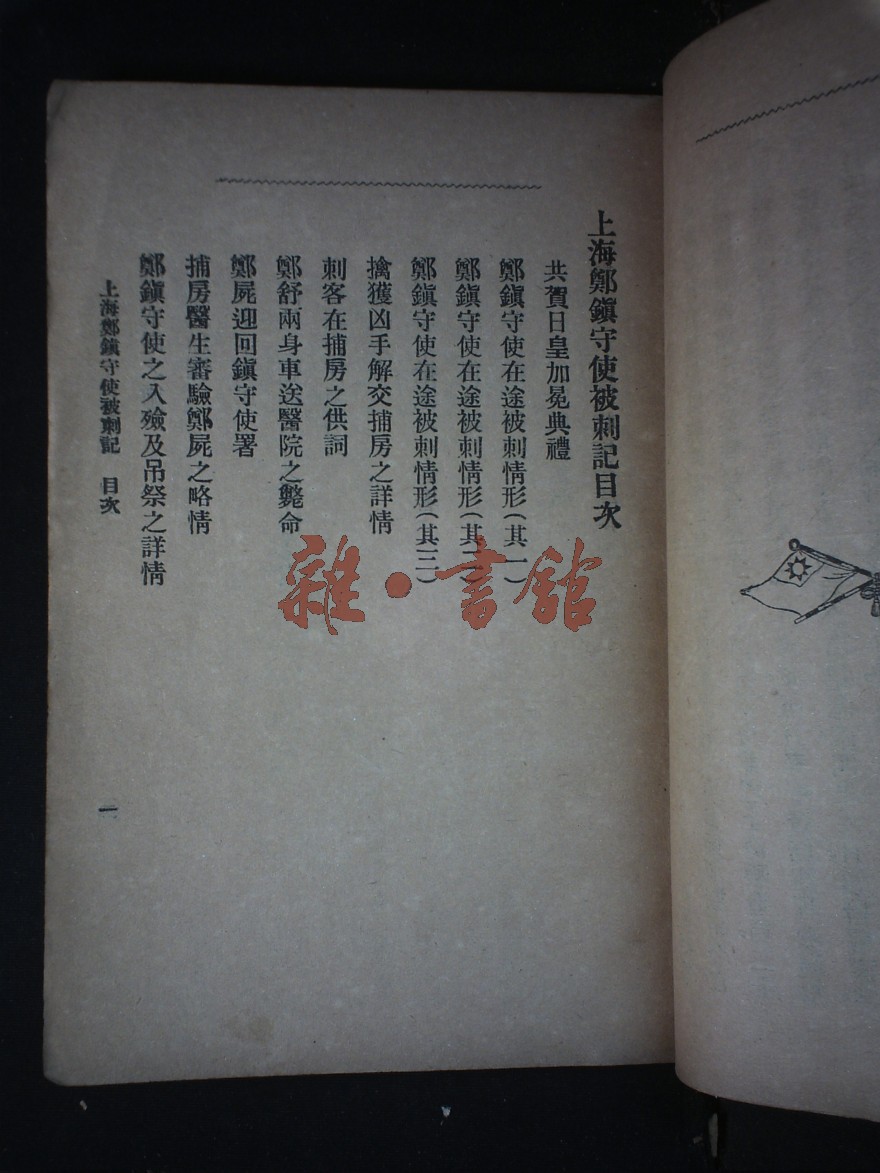 上海鄭鎭守使被刺記目次
共賀日皇加冕典禮
鄭鎭守使在途被刺情形(其一)
鄭鎭守使在途被刺情形(其二)
鄭鎭守使在途被刺情形(其三)
擒獲凶手解交捕房之詳情
刺客在捕房之供詞
鄭舒兩身車送醫院之斃命
鄭屍迎回鎭守使署
捕房醫生審驗鄭屍之略情
鄭鎭守使之入殮及吊祭之詳情
上海鄭鎭守使被刺記 目次
一
雜·書館